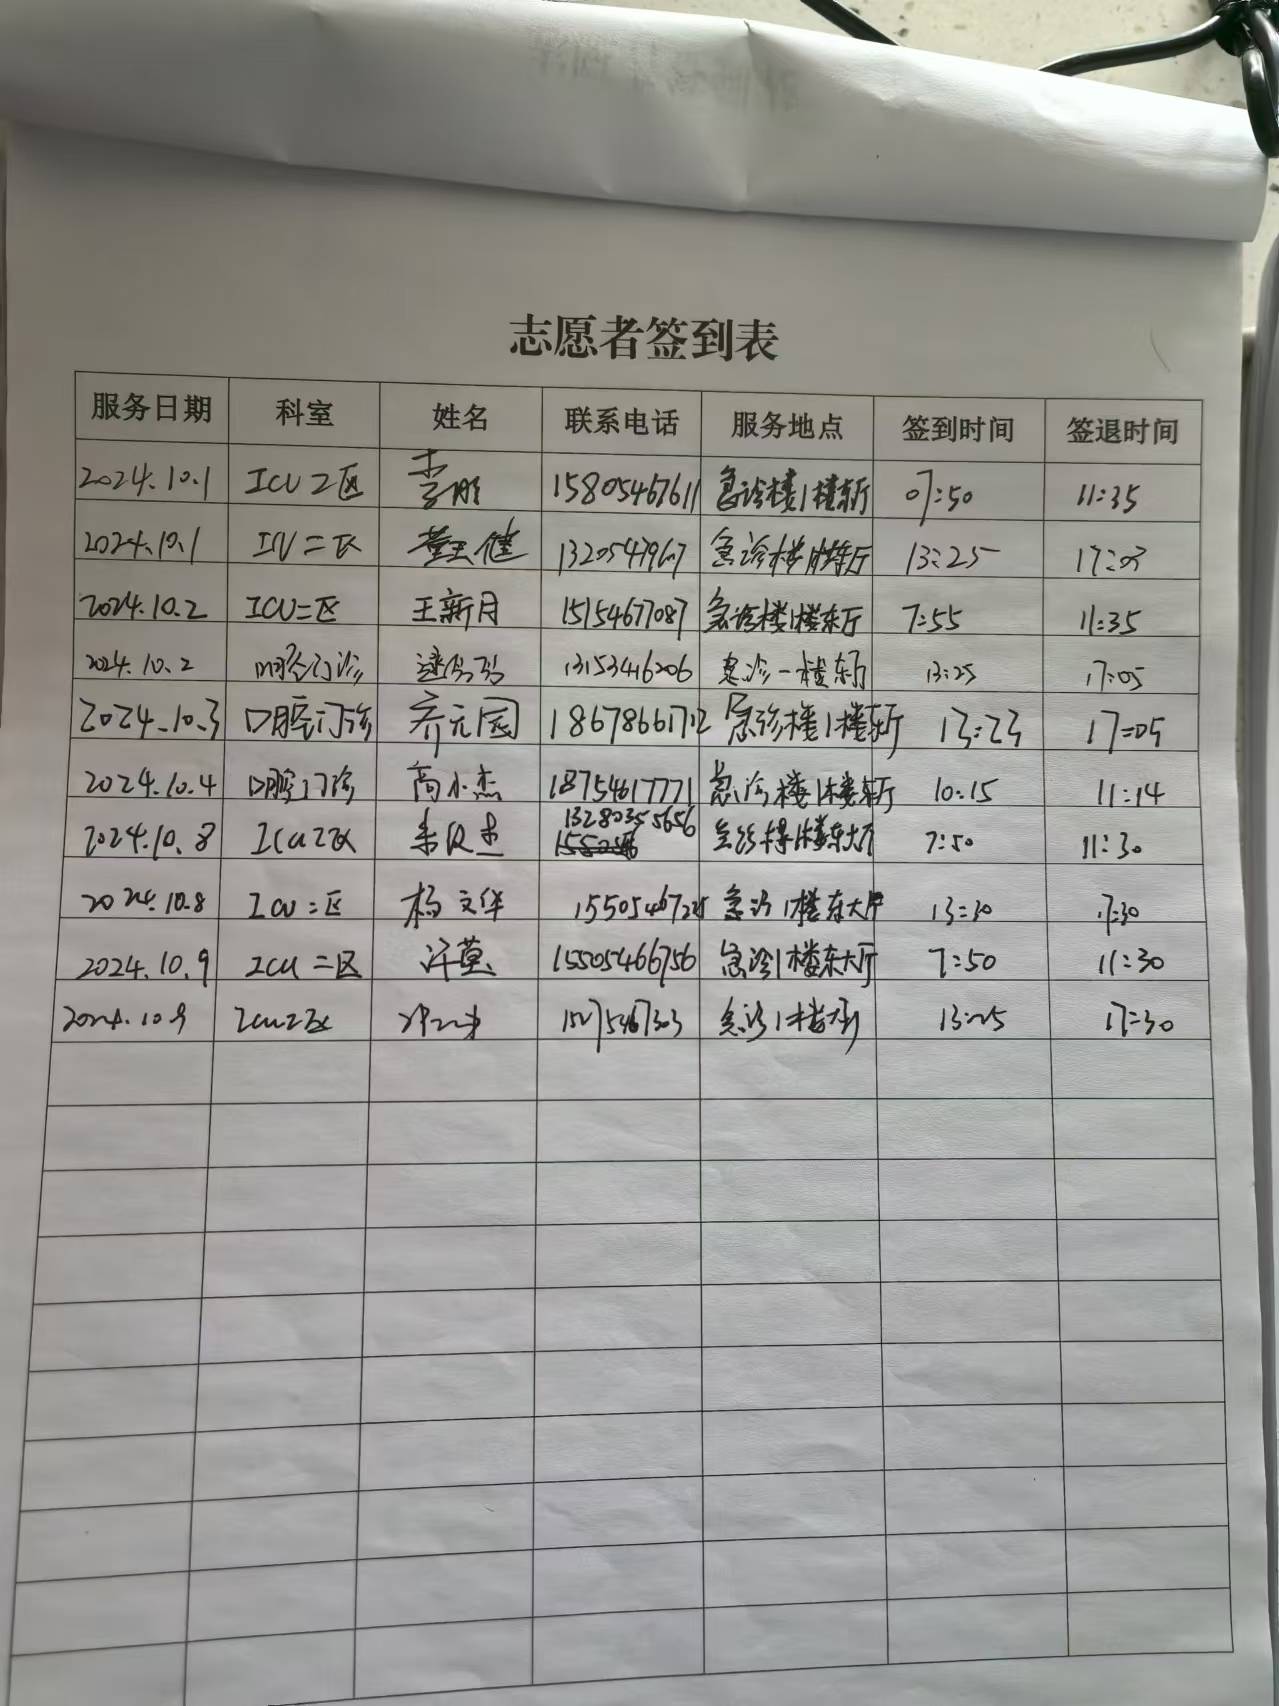 志愿者签到表
服务日期 科室 姓名 联系电话 服务地点 签到时间 签退时间
2024.10.1 ICU2区 李 15805467611 急诊楼1楼东厅 07:50 11:35
2024.10.1 ICU二区 董玉健 13205479607 急诊楼1楼东厅 13:25 17:05
2024.10.2 ICU二区 王新月 15154677087 急诊楼1楼东厅 7:55 11:35
2024.10.2 口腔门诊 13153416206 急诊一楼东厅 13:25 17:05
2024.10.3 口腔门诊 乔元国 18678661712 急诊楼1楼东厅 13:23 17:05
2024.10.4 口腔门诊 高小杰 18754617771 急诊楼1楼东厅 10:15 11:14
2024.10.8 ICU2区 13280355656 急诊楼1楼东大厅 7:50 11:30
2024.10.8 ICU二区 杨文华 急诊1楼东大厅 13:30 17:30
2024.10.9 ICU二区 许莫 15505466756 急诊1楼东大厅 7:50 11:30
2024.10.9 ICU2区 15275467303 急诊1楼大厅 13:25 17:30